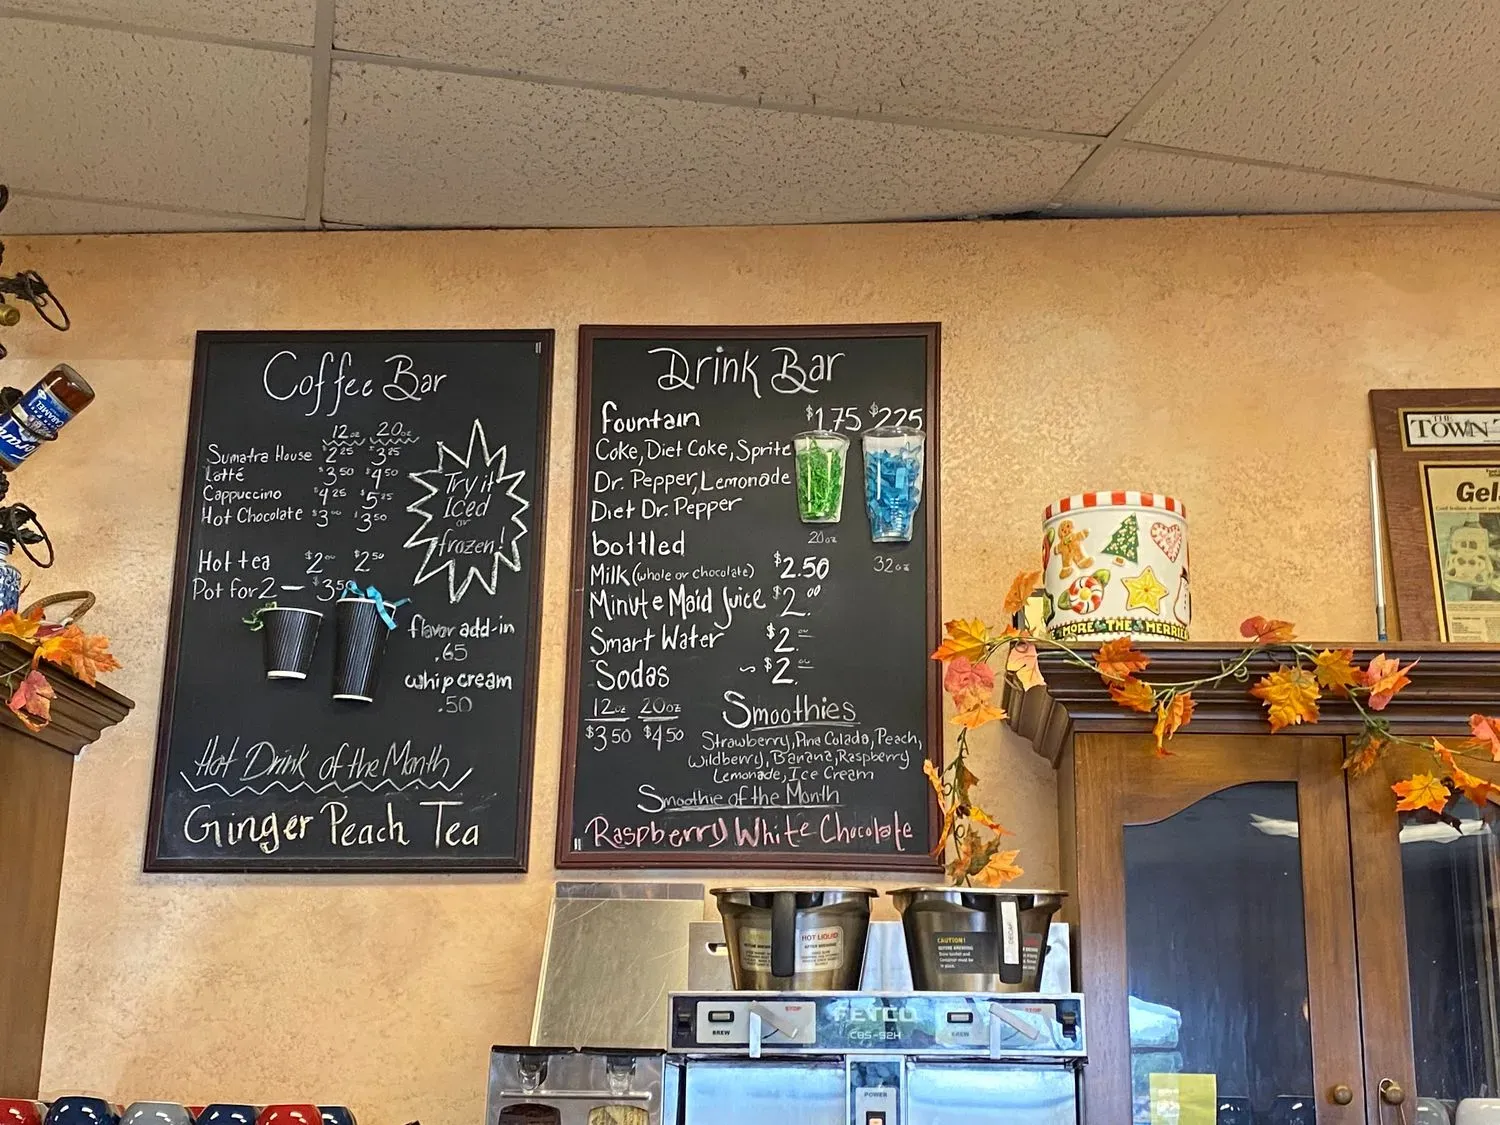 Coffee Bar
12oz 20oz
Sumatra House $2.25 $3.25
Latté $3.50 $4.50
Cappuccino $4.25 $5.25
Hot Chocolate $3.00 $3.50
Hot tea $2.00 $2.50
Pot for 2 — $3.50
Try it
Iced
or
frozen!
flavor add-in
.65
whip cream
.50
Hot Drink of the Month
Ginger Peach Tea
Drink Bar
fountain $1.75 $2.25
Coke, Diet Coke, Sprite
Dr. Pepper, Lemonade
Diet Dr. Pepper
20oz
32oz
bottled
Milk (whole or chocolate) $2.50
Minute Maid Juice $2.00
Smart Water $2.00
Sodas ~ $2.00
12oz 20oz
$3.50 $4.50
Smoothies
Strawberry, Pina Colada, Peach,
Wildberry, Banana, Raspberry
Lemonade, Ice Cream
Smoothie of the Month
Raspberry White Chocolate
CARAMEL
MORE THE MERRIE
THE
TOWN
Gel
HOT LIQUID
CAUTION!
DECAF
BREW
STOP
FETCO
CBS-52H
BREW
STOP
POWER